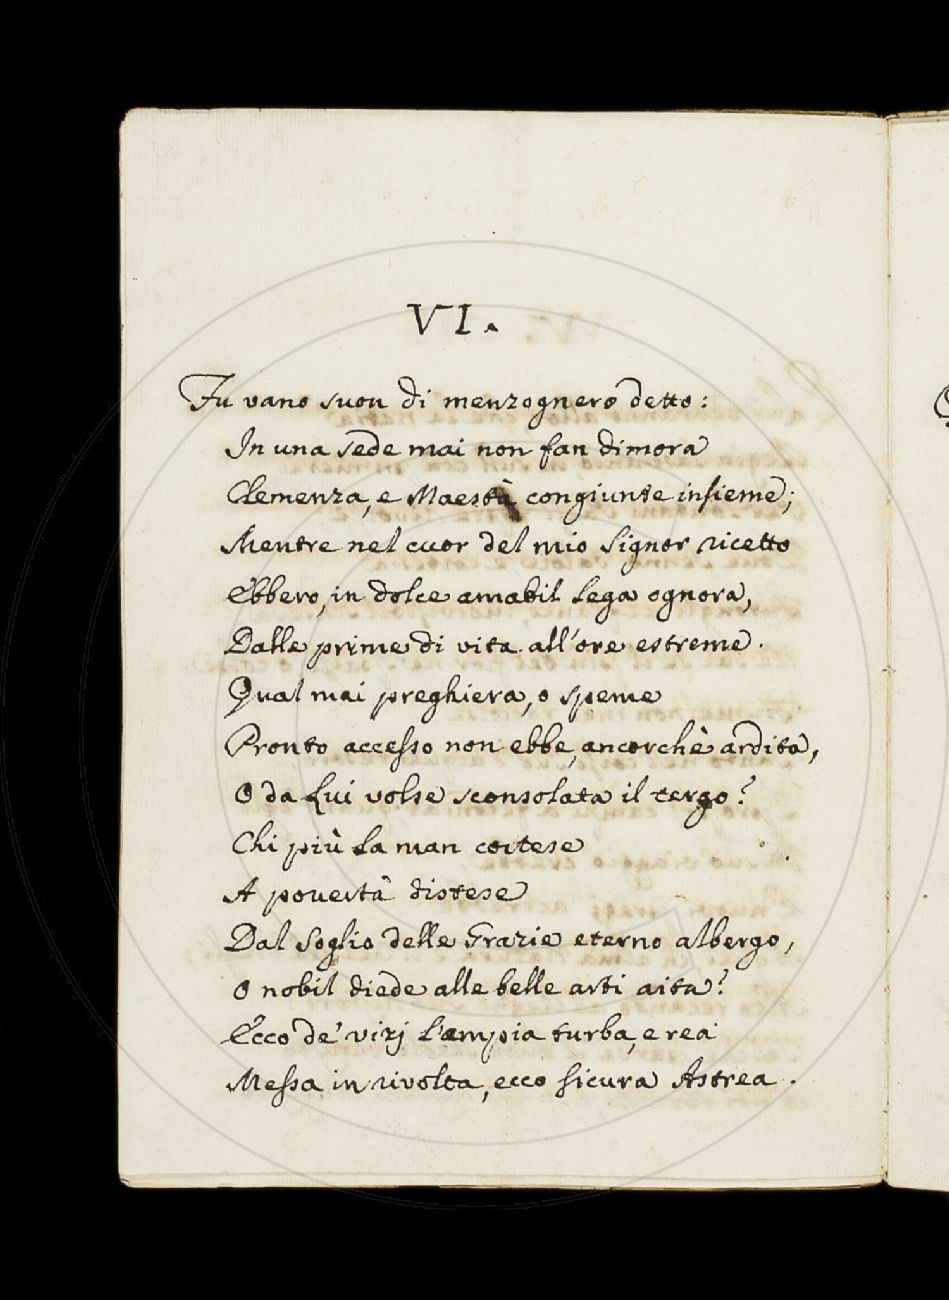 VI.
Fu vano suon di menzognero detto:
In una sede mai non fan dimora
Clemenza, e Maestà congiunte insieme;
Mentre nel cuor del mio Signor ricetto
Ebbero, in dolce amabil lega ognora,
Dalle prime di vita all'ore estreme.
Qual mai preghiera, o speme
Pronto accesso non ebbe, ancorchè ardita,
O da Lui volse sconsolata il tergo?
Chi più la man cortese
A povertà distese
Dal soglio delle Grazie eterno albergo,
O nobil diede alle belle arti aita?
Ecco de' vizj l'empia turba, e rea
Messa in rivolta, ecco sicura Astrea.